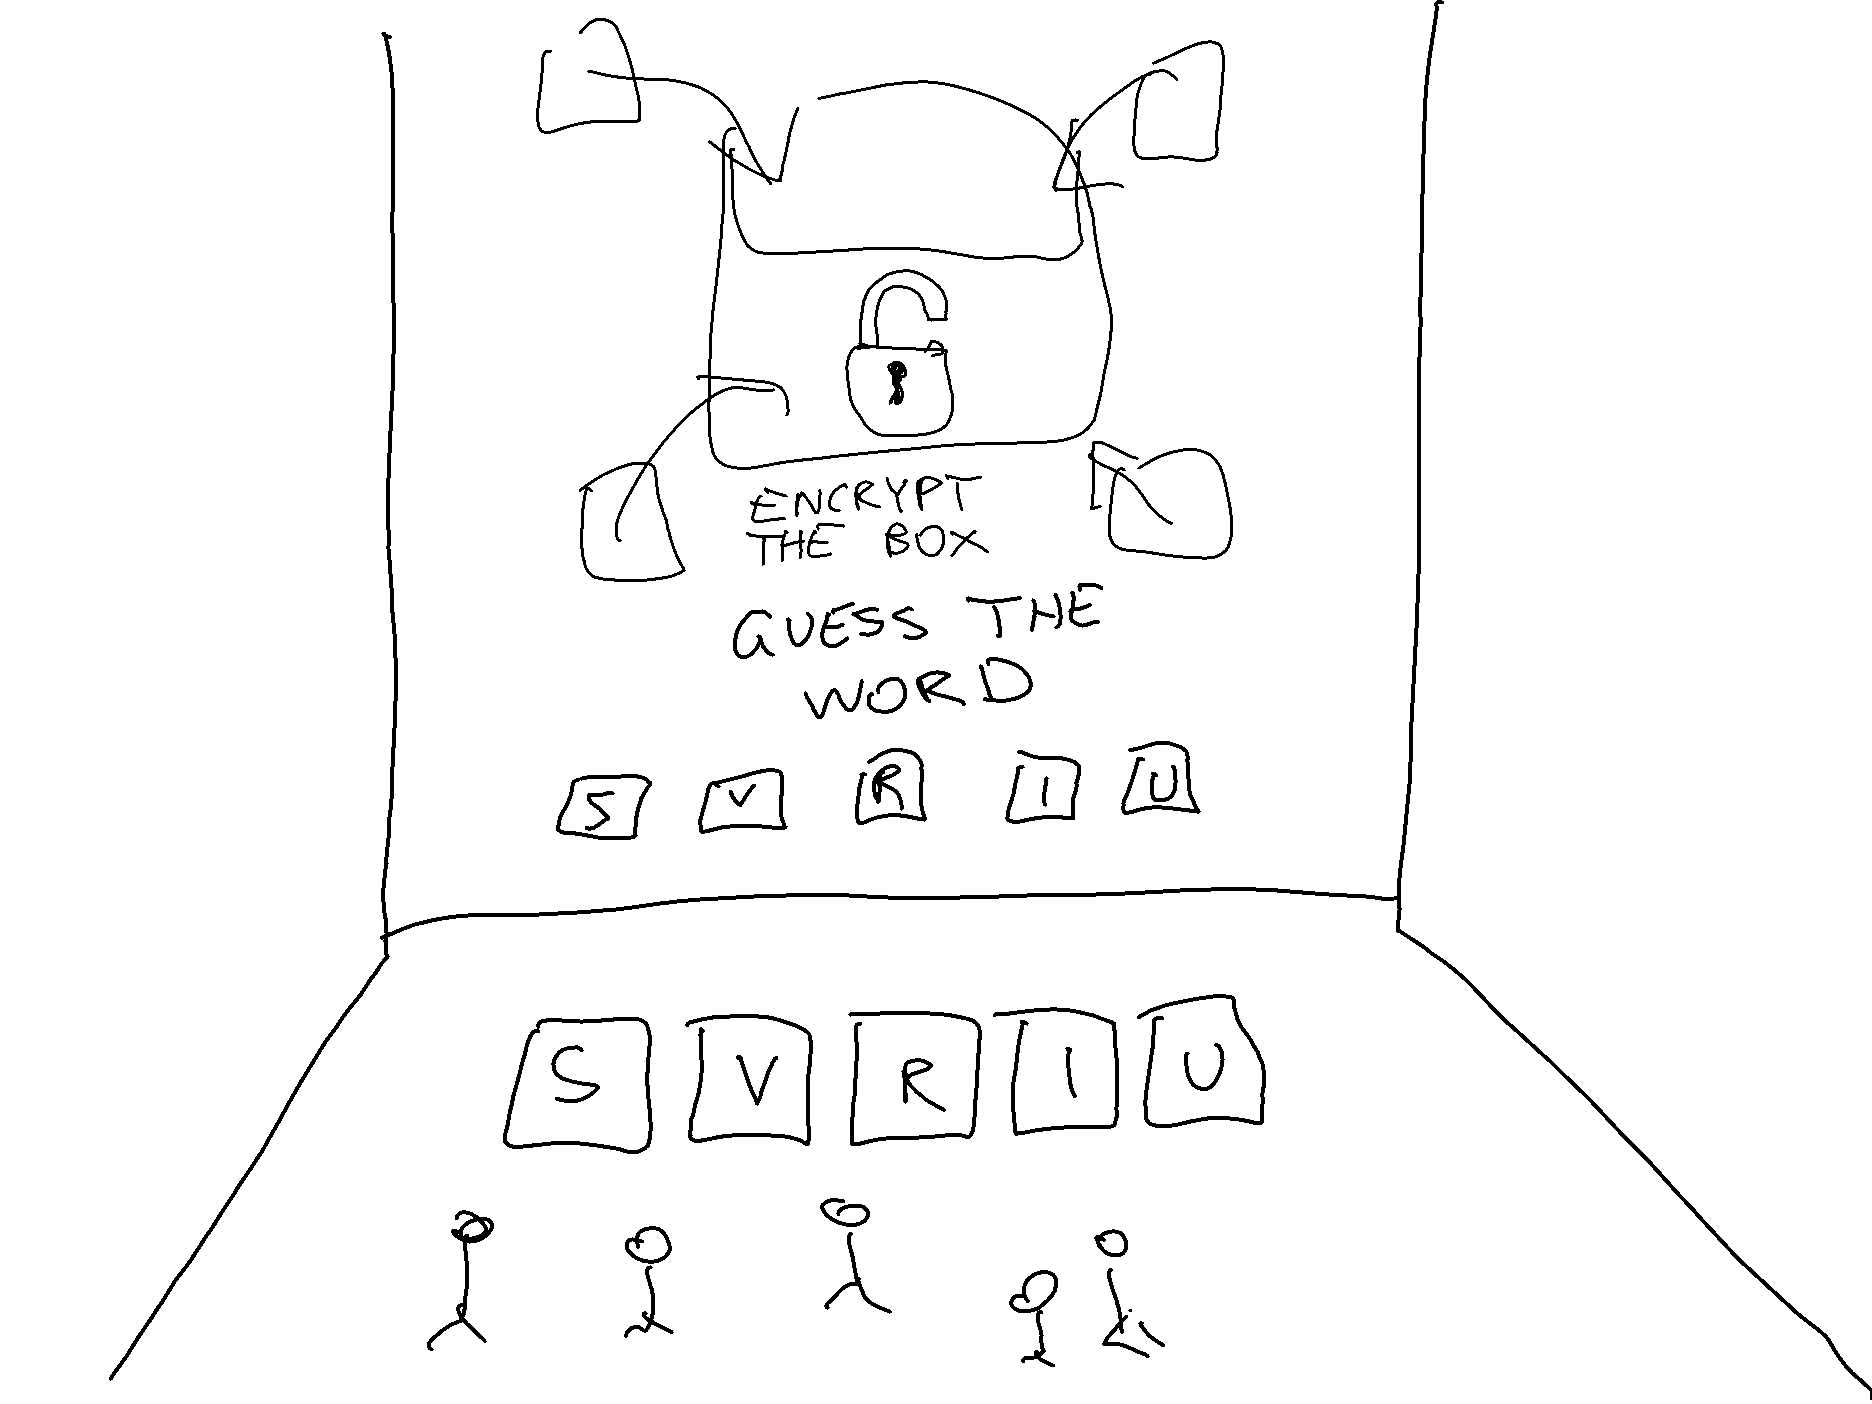 ENCRYPT
THE BOX
GUESS THE
WORD
S V R I U
S V R I U